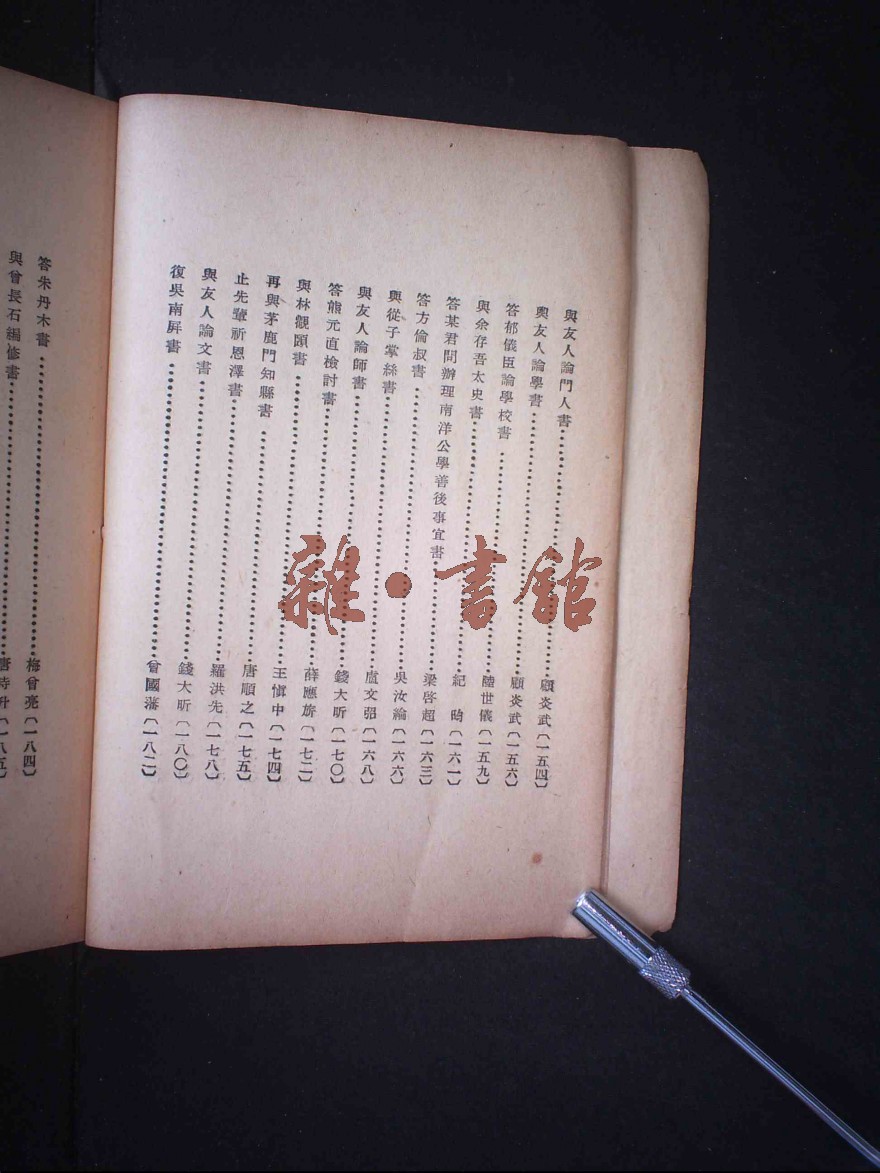 與友人論門人書……顧炎武〔一五四〕
與友人論學書……顧炎武〔一五六〕
答郁儀臣論學校書……陸世儀〔一五九〕
與余存吾太史書……紀　昀〔一六一〕
答某君問辦理南洋公學善後事宜書……梁啓超〔一六三〕
答方倫叔書……吳汝綸〔一六六〕
與從子掌絲書……盧文弨〔一六八〕
與友人論師書……錢大昕〔一七〇〕
答熊元直檢討書……薛應旂〔一七二〕
與林觀頤書……王愼中〔一七四〕
再與茅鹿門知縣書……唐順之〔一七五〕
止先輩祈恩澤書……羅洪先〔一七八〕
與友人論文書……錢大昕〔一八〇〕
復吳南屏書……曾國藩〔一八二〕
答朱丹木書……梅曾亮〔一八四〕
與曾長石編修書……唐時升〔一八五〕
雜·書館